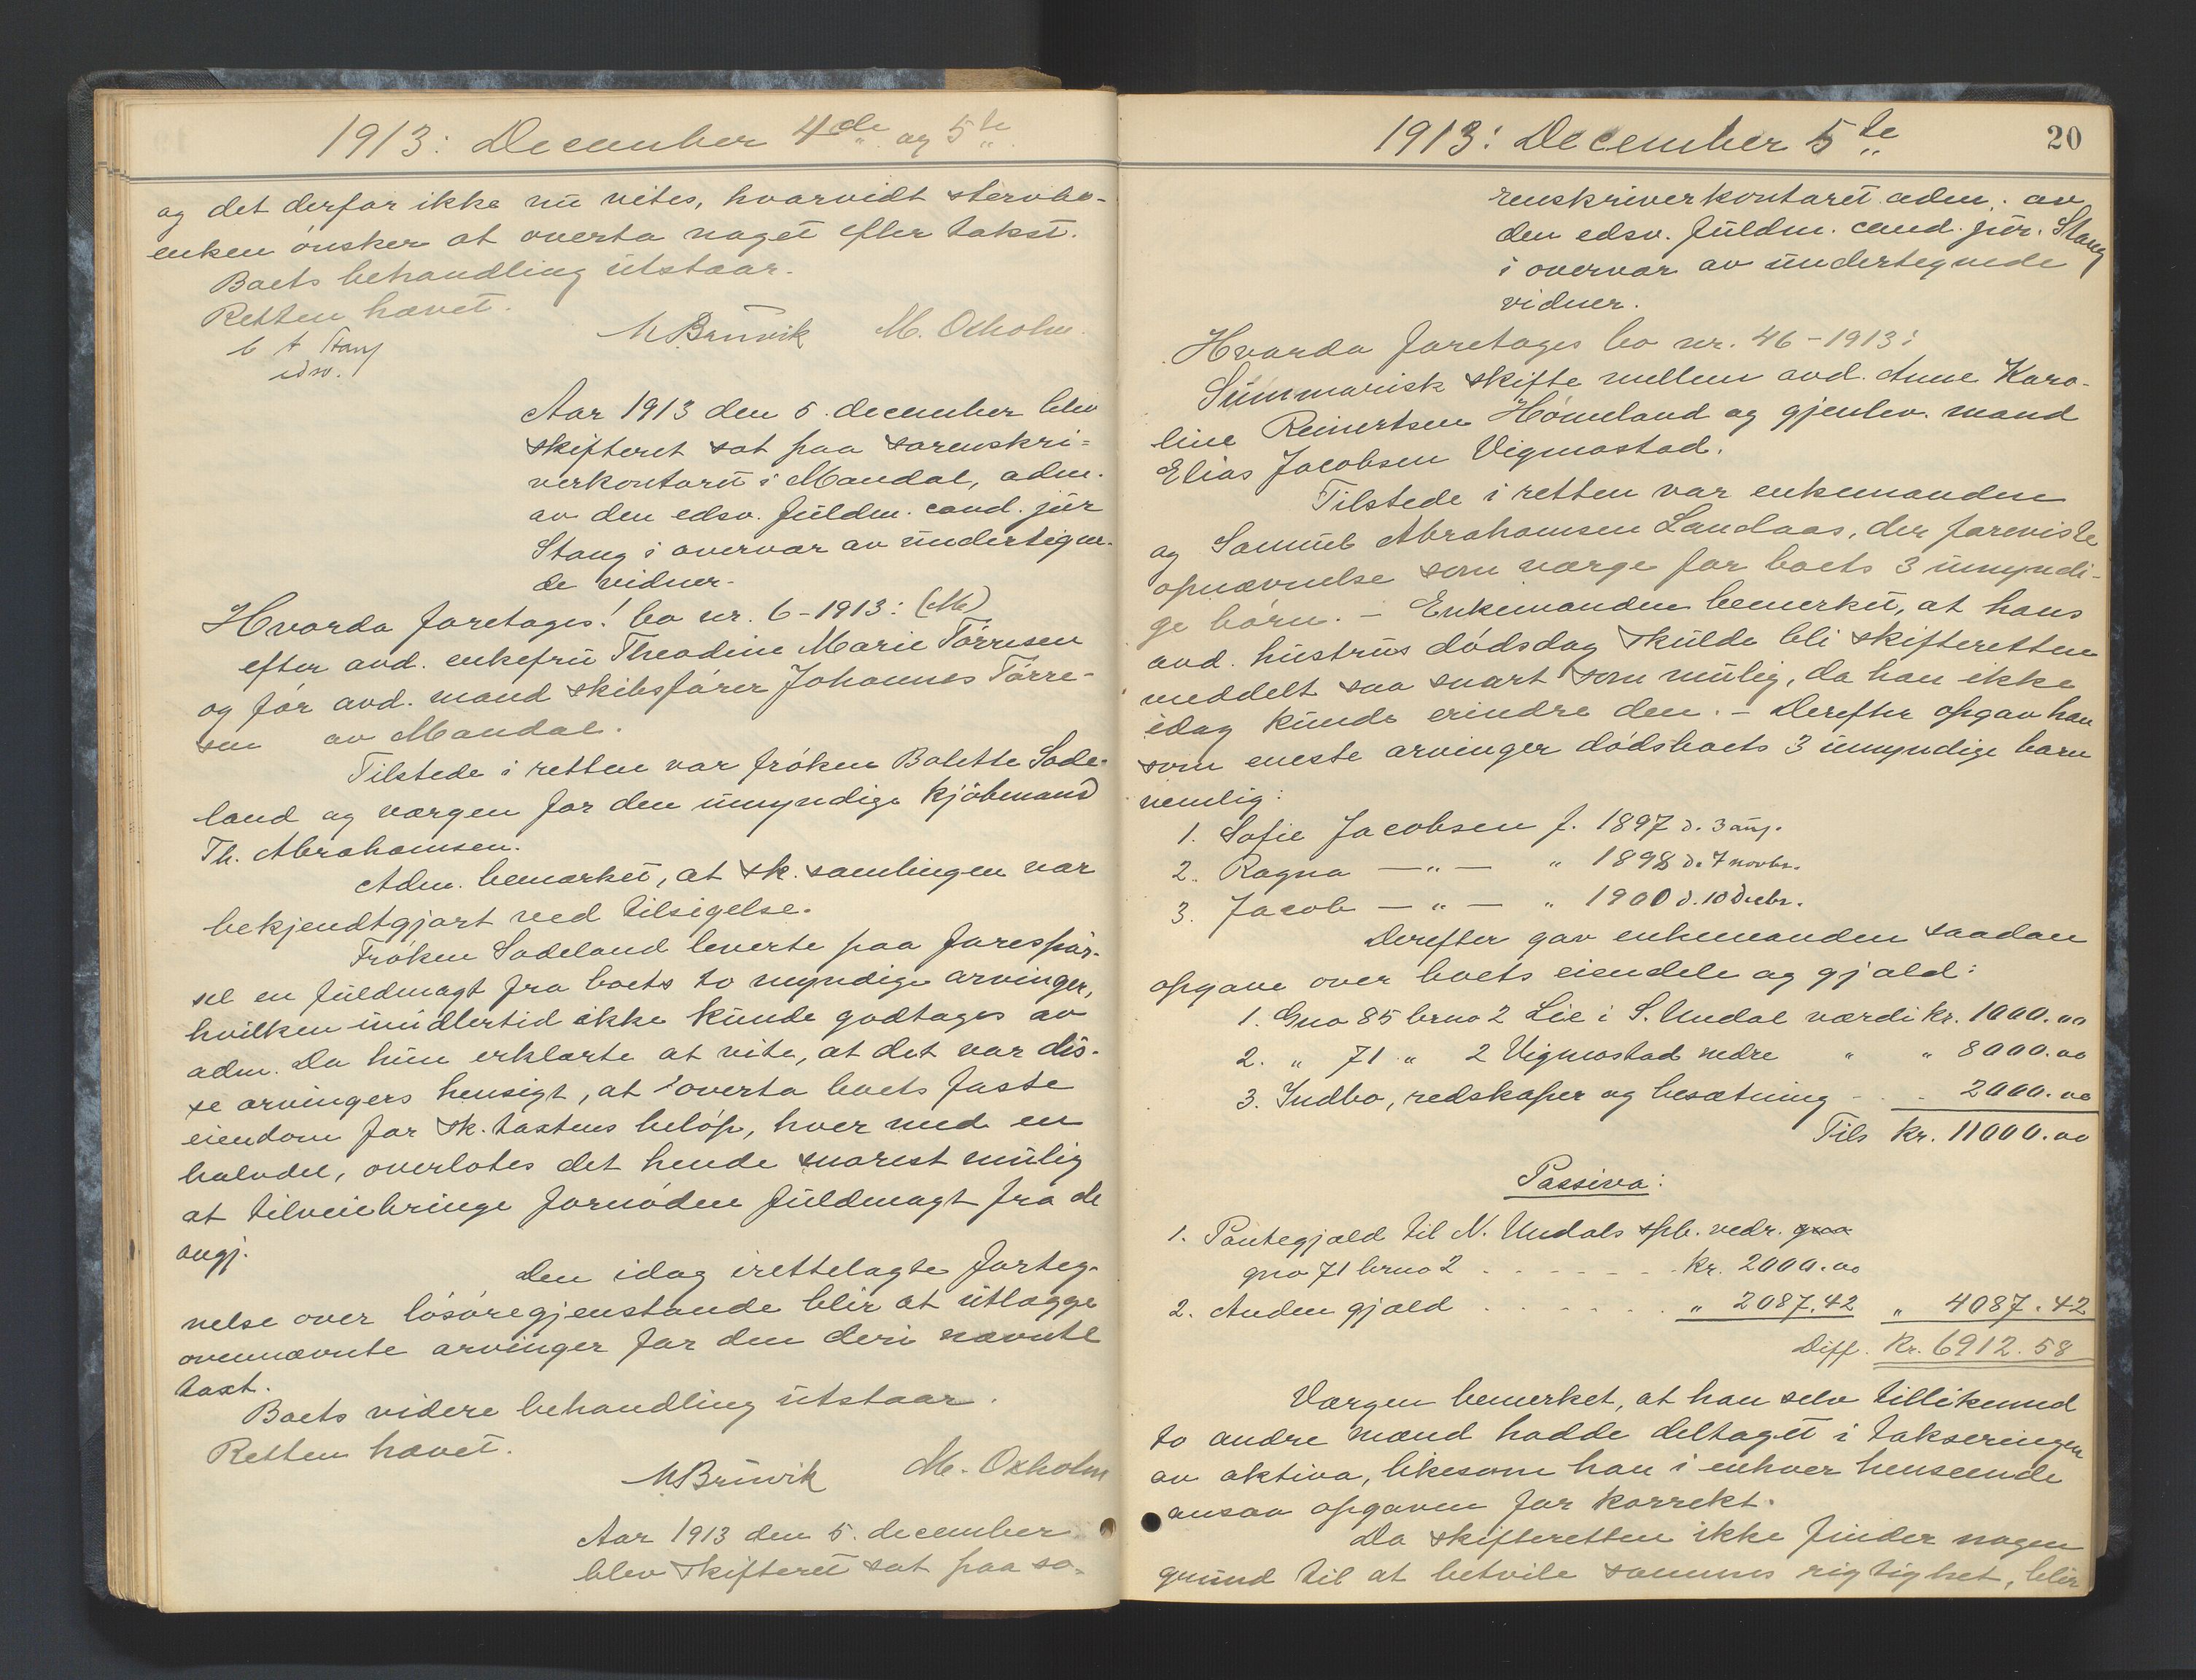 1913: December 4de og 5te
og det derfor ikke nu vites, hvorvidt stervbo-
enken ønsker at overta noget efter takst.
Boets behandling utstaar.
Retten hævet.
MBruvik M. Oxholm.
C A Stang
edsv.
Aar 1913 den 5. december blev
skifteret sat paa sorenskri-
verkontoret i Mandal, adm.
av den edsv. fuldm. cand. jur
Stang i overvær av undertegne-
de vidner.
Hvorda foretages: bo nr. 6-1913: (M)
efter avd. enkefru Theodine Marie Tørresen
og før avd. mand skibsfører Johannes Tørre-
sen av Mandal.
Tilstede i retten var frøken Bolette Sode-
land og værgen for den umyndige kjøbmand
Th. Abrahamsen.
Adm. bemærket, at sk. samlingen var
bekjendtgjort ved tilsigelse.
Frøken Sodeland leverte paa forespør-
sel en fuldmagt fra boets to myndige arvinger,
hvilken imidlertid ikke kunde godtages av
adm. Da hun erklærte at vite, at det var dis-
se arvingers hensigt, at overta boets faste
eiendom for sk. taxtens beløp, hver med en
halvdel, overlotes det hende snarest mulig
at tilveiebringe fornøden fuldmagt fra de
angj.
Den idag irettelagte forteg-
nelse over løsøregjenstande blir at utlægge
ovennævnte arvinger for den deri nævnte
taxt.
Boets videre behandling utstaar.
Retten hævet.
MBruvik M. Oxholm
Aar 1913 den 5. december
blev skifteret sat paa so-
1913: December 5te
20
renskriverkontoret adm. av
den edsv. fuldm. cand. jur. Stang
i overvær av undertegnede
vidner.
Hvorda foretages bo nr. 46-1913:
Summarisk skifte mellem avd. Anne Karo-
line Reinertsen Hømeland og gjenlev. mand
Elias Jacobsen Vigmostad.
Tilstede i retten var enkemanden
og Samuel Abrahamsen Landaas, der foreviste
opnævnelse som værge for boets 3 umyndi-
ge børn. - Enkemanden bemerket, at hans
avd. hustrus dødsdag skulde bli skifteretten
meddelt saa snart som mulig, da han ikke
idag kunde erindre den. - Derefter opgav han
som eneste arvinger dødsboets 3 umyndige barn
nemlig:
1. Sofie Jacobsen f. 1897 d. 3 aug.
2. Ragna - " - " 1898 d. 7 novbr.
3. Jacob - " - " 1900 d. 10 decbr.
Derefter gav enkemanden saadan
opgave over boets eiendele og gjæld:
1. Gno 85 brno 2 Lie i S. Undal værdi kr. 1000.00
2. " 71 " 2 Vigmostad nedre " " 8000.00
3. Indbo, redskaper og besætning - . . 2000.00
Tils kr. 11000.00
Passiva:
1. Pantegjæld til N. Undals spb. vedr. gno
gno 71 brno 2 . - - - - - kr. 2000.00
2. Anden gjæld . . - - . . " 2087.42 " 4087.42
Diff. kr. 6912.58
Værgen bemerket, at han selv tillikemed
to andre mænd hadde deltaget i takseringen
av aktiva, likesom han i enhver henseende
ansaa opgaven for korrekt.
Da skifteretten ikke finder nogen
grund til at betvile sammes rigtighet, blir